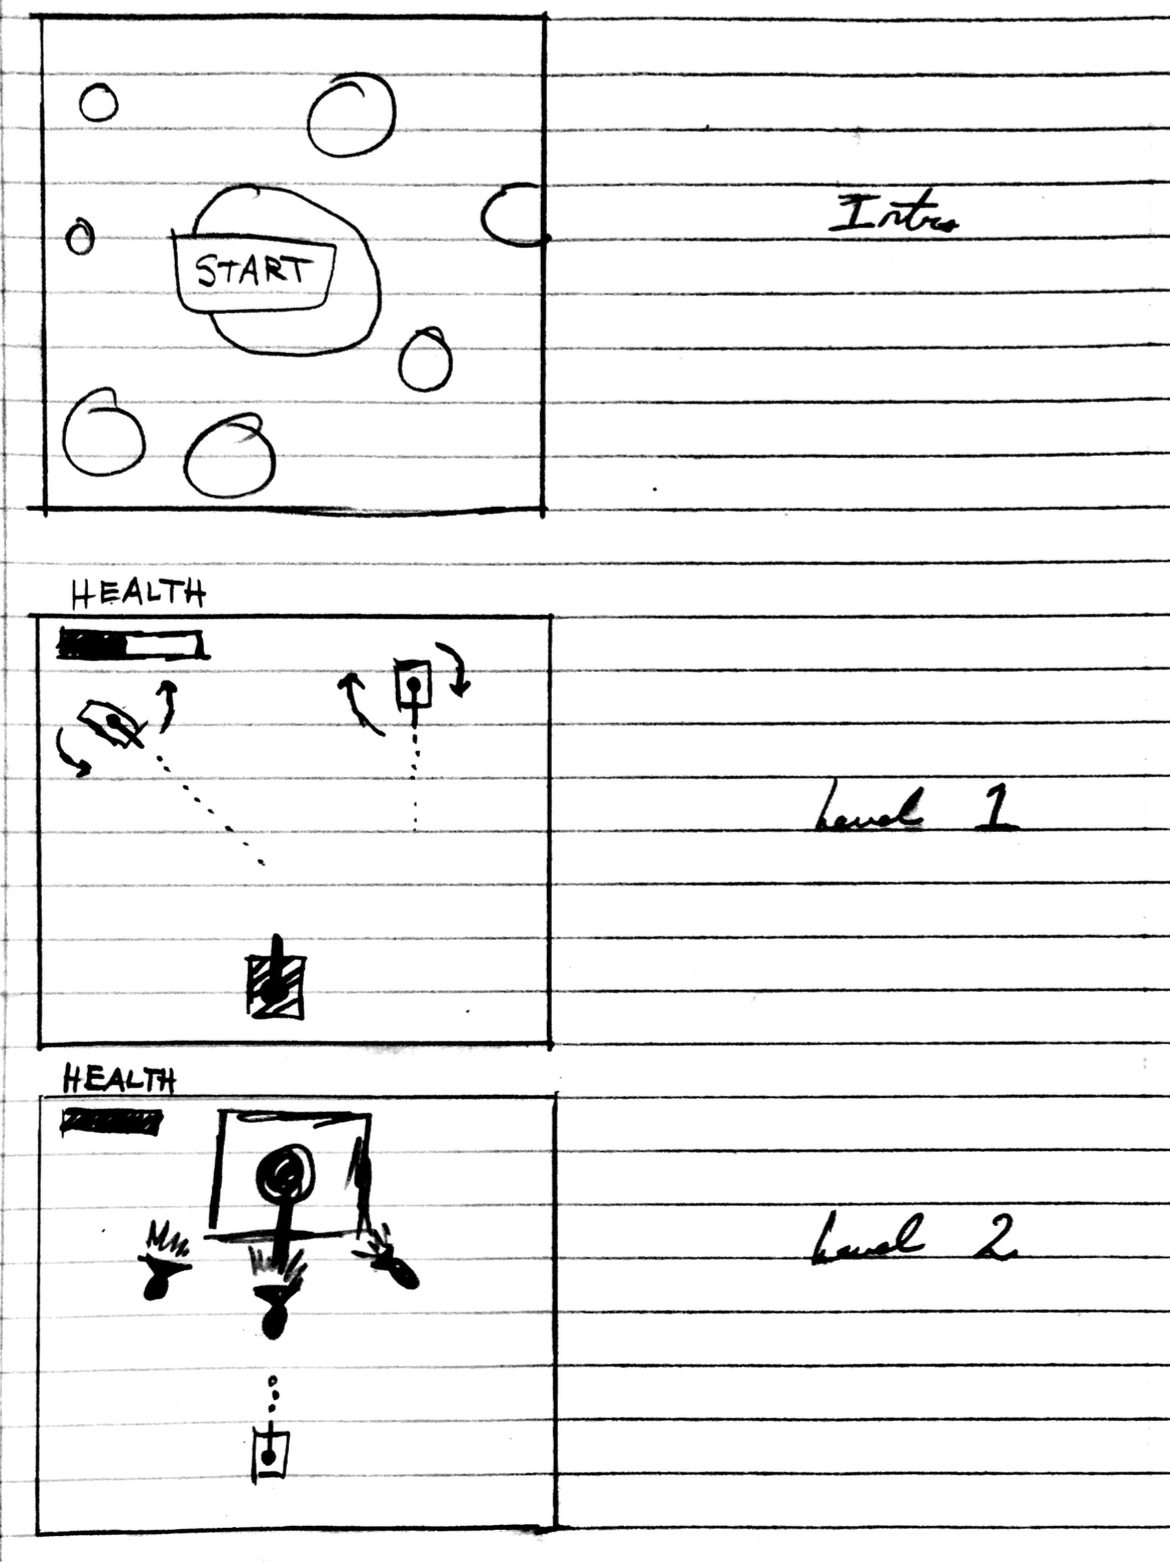 START
Intro
HEALTH
Level 1
HEALTH
Level 2